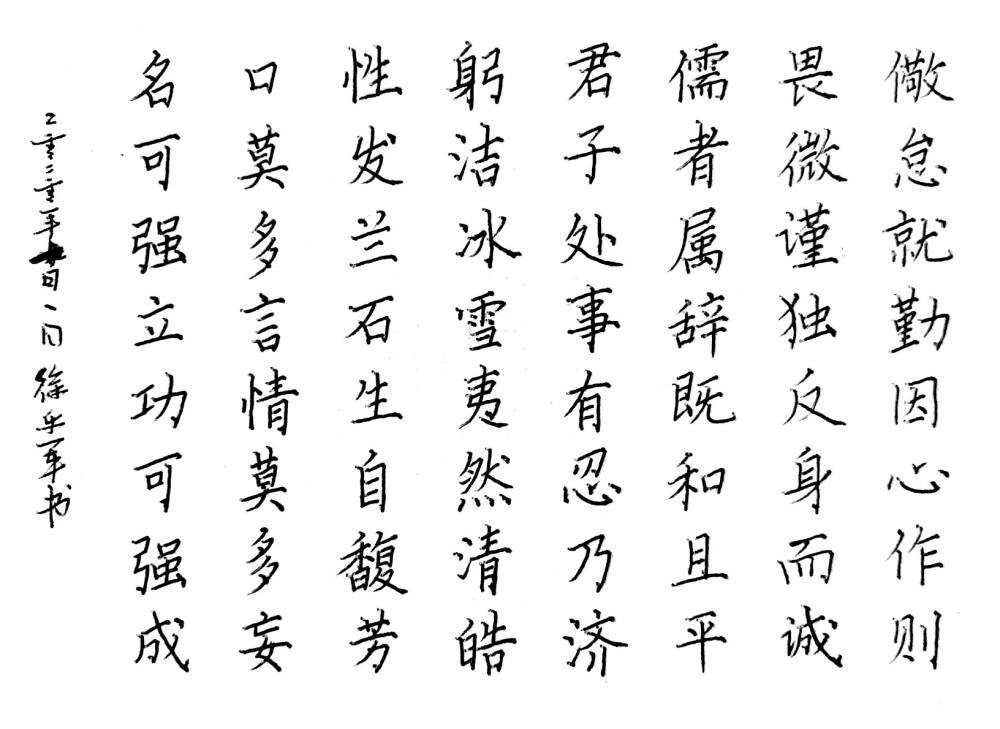 儆怠就勤因心作则
畏微谨独反身而诚
儒者属辞既和且平
君子处事有忍乃济
躬洁冰雪夷然清皓
性发兰石生自馥芳
口莫多言情莫多妄
名可强立功可强成
二零二零年 月 日 徐 军书